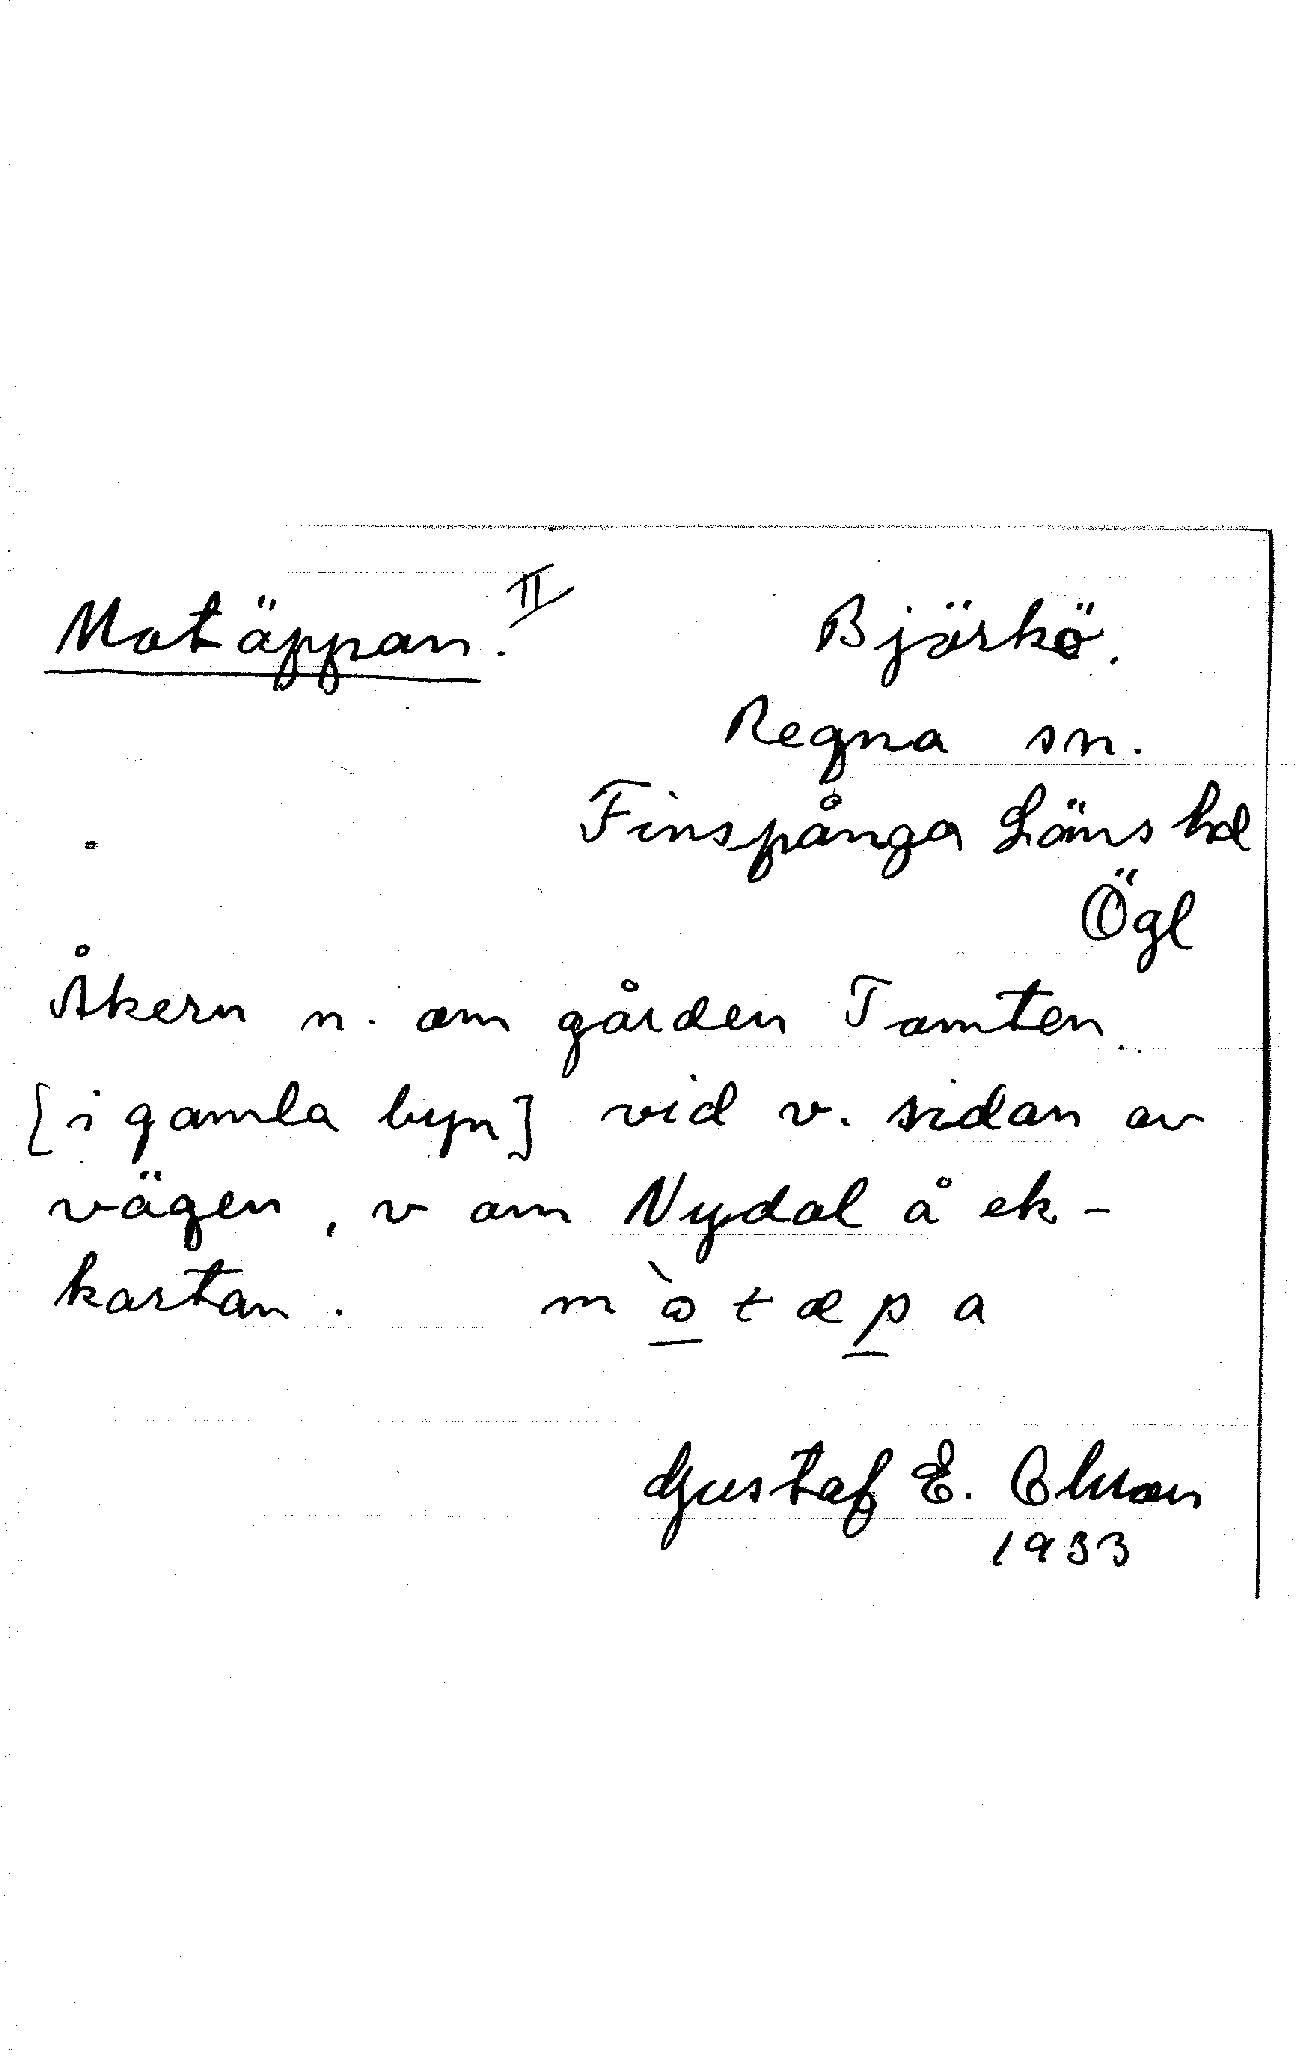 Motäppan. II Björkö.
Regna sn.
Finspånga Läns hd
Ögl
Åkern n. om gården Tomten
[i gamla byn] vid v. sidan av
vägen, v om Nydal å ek-
kartan. m ò t æ p a
Gustaf E. Olsson
1933